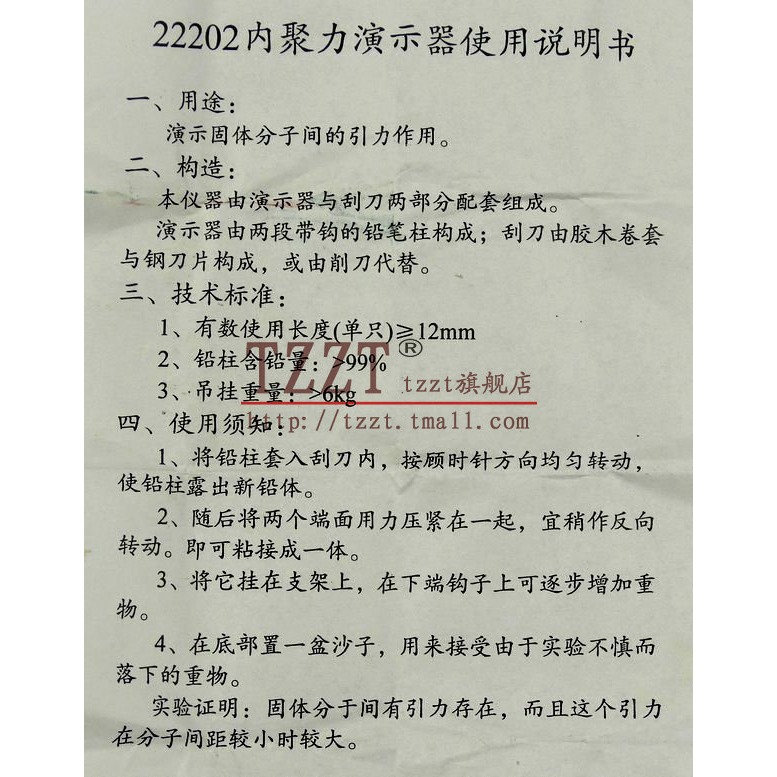 22202内聚力演示器使用说明书
一、用途：
演示固体分子间的引力作用。
二、构造：
本仪器由演示器与刮刀两部分配套组成。
演示器由两段带钩的铅笔柱构成；刮刀由胶木卷套
与钢刀片构成，或由削刀代替。
三、技术标准：
1、有数使用长度(单只)≥12mm
2、铅柱含铅量：>99%
3、吊挂重量：>6kg
TZZT® tzzt旗舰店
http://tzzt.tmall.com
四、使用须知：
1、将铅柱套入刮刀内，按顾时针方向均匀转动，
使铅柱露出新铅体。
2、随后将两个端面用力压紧在一起，宜稍作反向
转动。即可粘接成一体。
3、将它挂在支架上，在下端钩子上可逐步增加重
物。
4、在底部置一盆沙子，用来接受由于实验不慎而
落下的重物。
实验证明：固体分于间有引力存在，而且这个引力
在分子间距较小时较大。